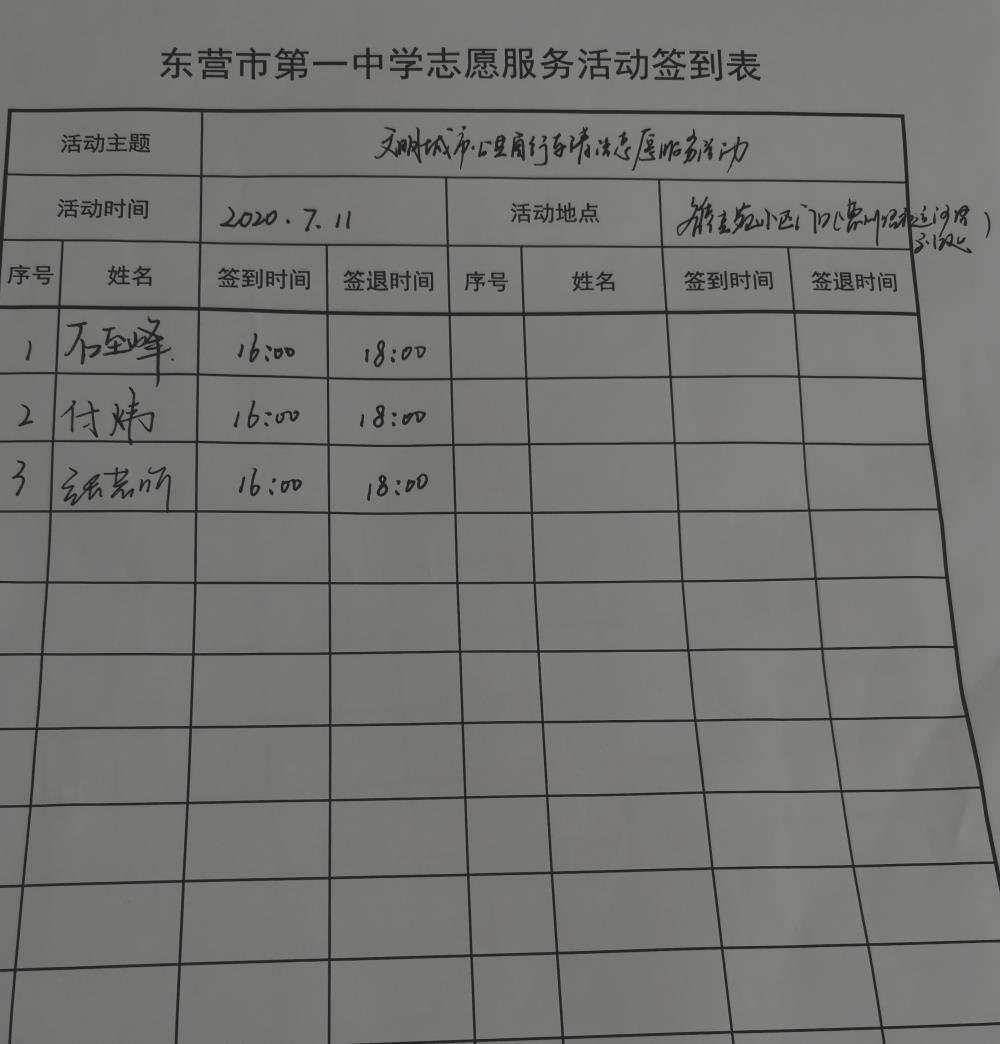 东营市第一中学志愿服务活动签到表
活动主题 文明城市·公益自行车清洁志愿服务活动
活动时间 2020.7.11 活动地点 小区门口(
序号 姓名 签到时间 签退时间 序号 姓名 签到时间 签退时间
1 石至峰 16:00 18:00
2 付炜 16:00 18:00
3 张 16:00 18:00